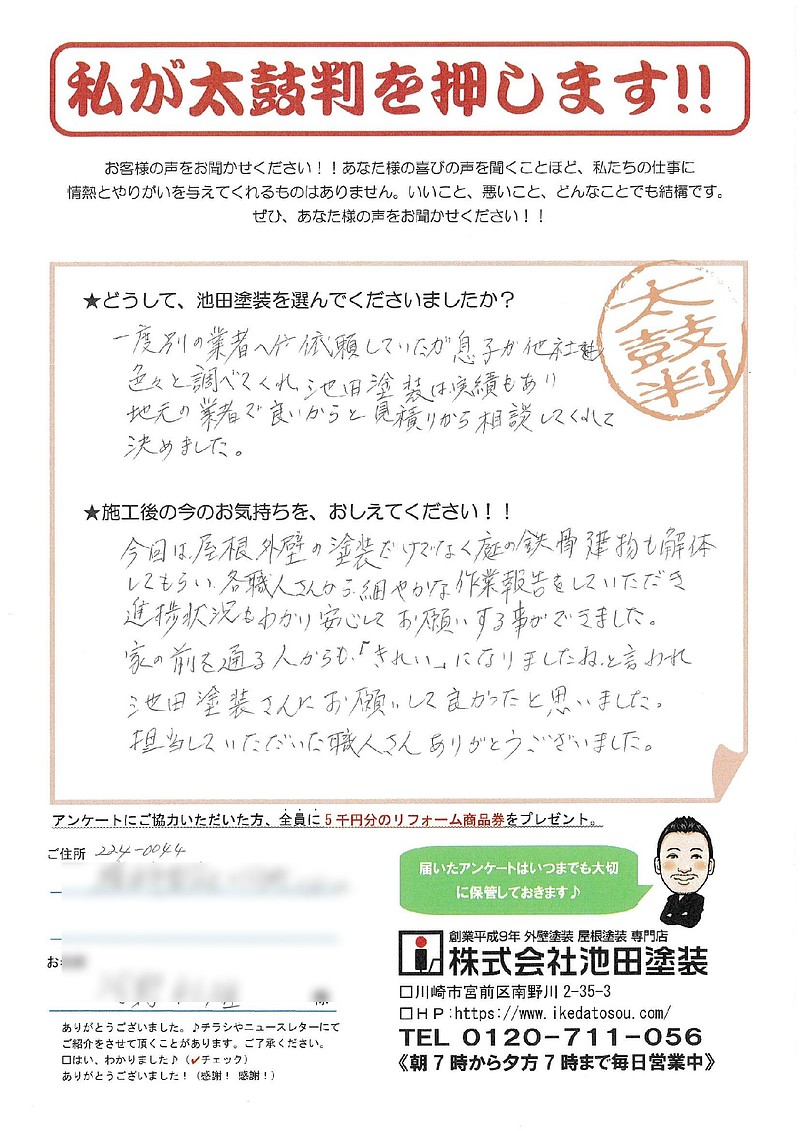 私が太鼓判を押します!!
お客様の声をお聞かせください！！あなた様の喜びの声を聞くことほど、私たちの仕事に
情熱とやりがいを与えてくれるものはありません。いいこと、悪いこと、どんなことでも結構です。
ぜひ、あなた様の声をお聞かせください！！
太鼓判
★どうして、池田塗装を選んでくださいましたか？
一度別の業者へ依頼していたが息子が他社
色々と調べてくれ、池田塗装は実績もあり
地元の業者で良いからと見積りから相談してくれて
決めました。
★施工後の今のお気持ちを、おしえてください！！
今回は、屋根、外壁の塗装だけでなく庭の鉄骨建物も解体
してもらい、各職人さんから、細やかな作業報告をしていただき
進捗状況もわかり安心してお願いする事ができました。
家の前を通る人からも、「きれい」になりましたね。と言われ
池田塗装さんにお願いして良かったと思いました。
担当していただいた職人さんありがとうございました。
アンケートにご協力いただいた方、全員に5千円分のリフォーム商品券をプレゼント。
ご住所 224-0044
お
様
ありがとうございました。♪チラシやニュースレターにて
ご紹介をさせて頂くことがあります。ご了承ください。
□はい、わかりました♪（✓チェック）
ありがとうございました！（感謝！感謝！）
届いたアンケートはいつまでも大切
に保管しておきます♪
創業平成9年 外壁塗装 屋根塗装 専門店
株式会社池田塗装
□川崎市宮前区南野川2-35-3
□HP:https://www.ikedatosou.com/
TEL 0120-711-056
《朝7時から夕方7時まで毎日営業中》